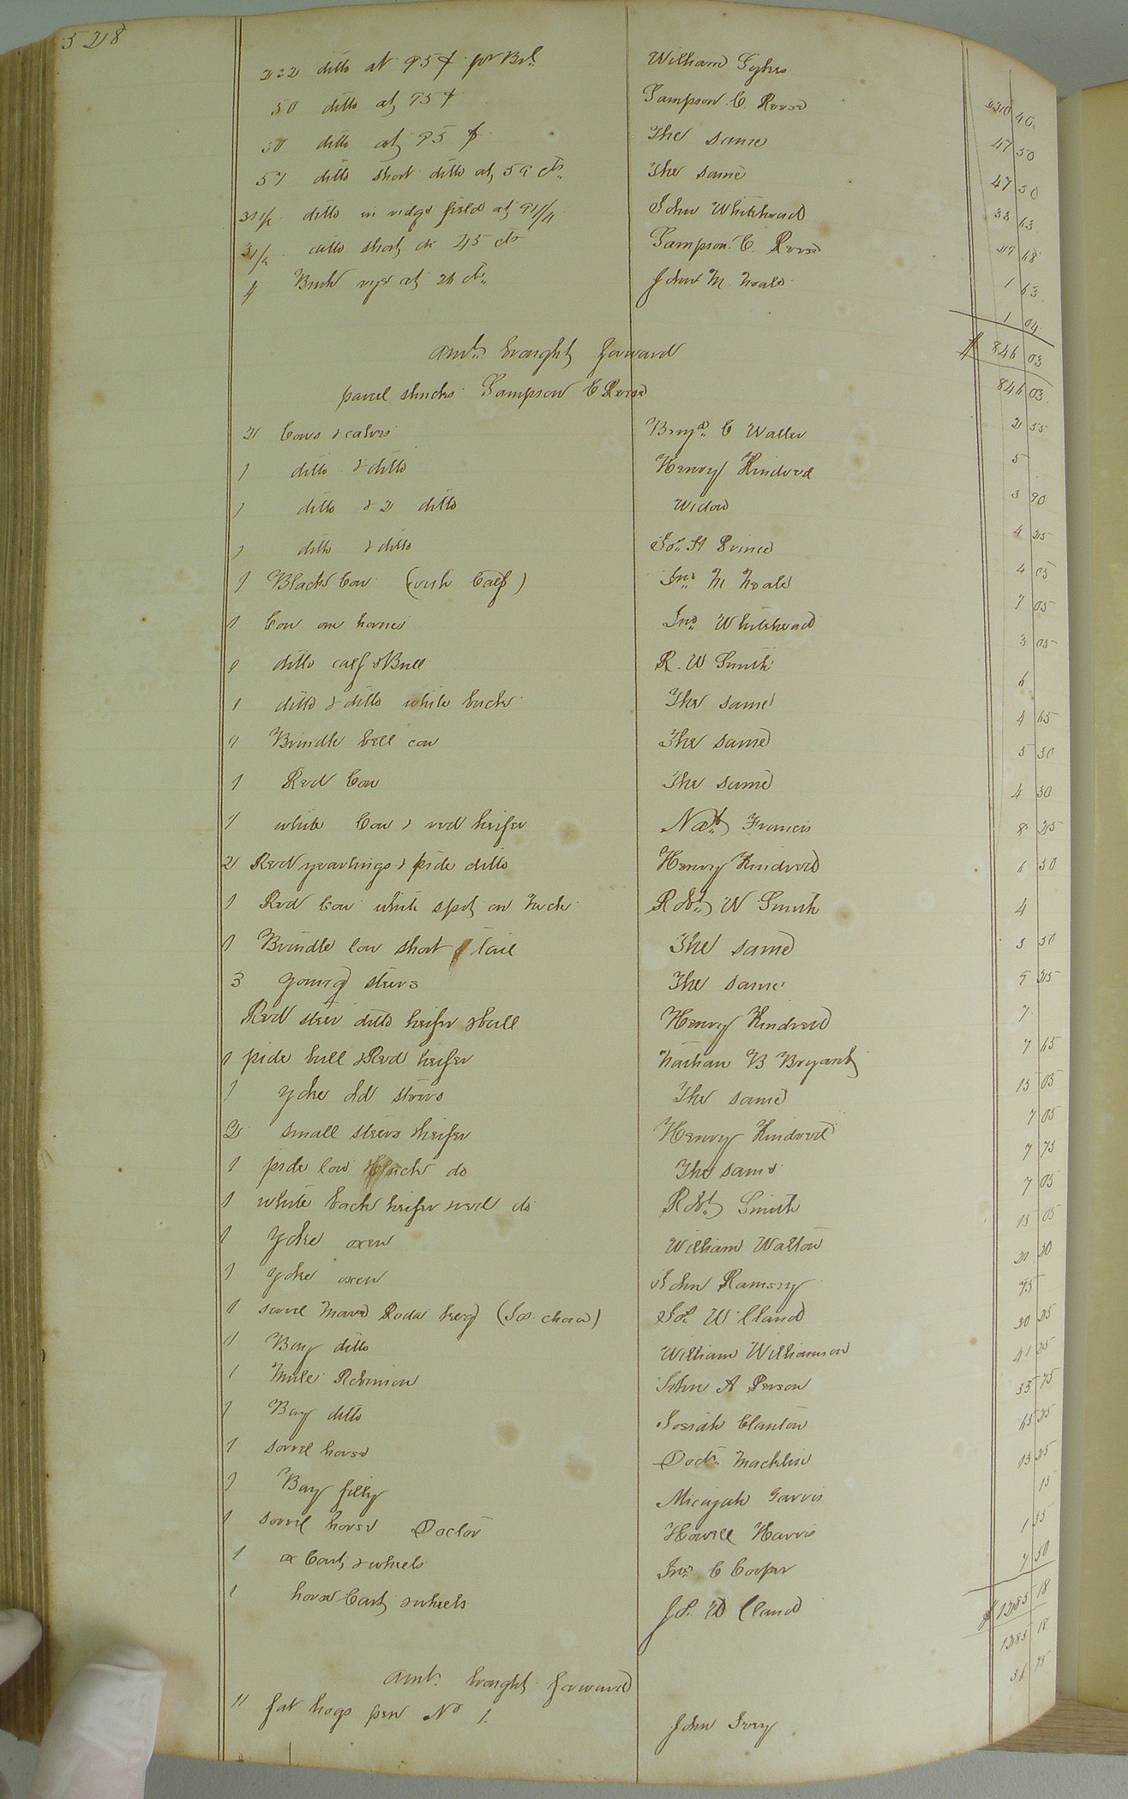 528
222 ditto at 95 ¢ pr Brl. William Sykes 210 40
50 ditto at 95 ¢ Sampson C. Reese 47 50
50 ditto at 95 ¢ The same 47 50
57 ditto short ditto at 59 cts. The same 33 63
ditto in ridge field at 91 1/4 John Whitehead
ditto short do 45 cts Sampson C. Reese 1 63
4 Buck rye at 26 cts. John M. Neale 1 04
$ 846 03
Amt. brought forward 846 03
parcel shucks Sampson C Reese 2 55
2 Cows & calves Benja. C Waller 5
1 ditto & ditto Henry Kindred 3 90
1 ditto & 2 ditto Widow 4 25
1 ditto & ditto Jos. H Prince 4 05
1 Black Cow (with Calf) Jno. M Neale 7 05
1 Cow one horned Jno. Whitehead 3 05
1 ditto calf & Bull R. W Smith 6
1 ditto & ditto white back The same 4 65
1 Brindle bell cow The same 5 50
1 Red Cow The same 4 50
1 white Cow & red heifer Nat. Francis 8 25
2 Red yearlings & pide ditto Henry Kindred 6 50
1 Red Cow white spot on back Robt. W Smith 4
1 Brindle Cow short tail The same 5 50
3 young steers The same 9 25
Red steer ditto heifer & bull Henry Kindred 7
1 pide bull & Red heifer Nathan B Bryant 7 65
1 yoke old steers The same 15 05
2 small steers heifer Henry Kindred 7 05
1 pide Cow black do The same 7 75
1 white back heifer & red do Robt. Smith 7 05
1 yoke oxen William Walton 15 05
1 yoke oxen John Ramsey 20 20
1 sorrel Mare (Jos. choice) Jos. W Claud 75
1 Bay ditto William Williamson 20 25
1 Mule Robinson John A Person 41 25
1 Bay ditto Josiah Clanton 55 75
1 sorrel horse Doctr. Macklin 65 25
1 Bay filly Micajah Jarvis
1 sorrel horse Doctor Howell Harris 15
1 ox Cart & wheels Jno. C Cooper
1 horse Cart & wheels Jos. W Claud 7 50
$ 1285 18
Amt. brought forward 1285 18
11 fat hogs pen No 1. John Ivey 36 75